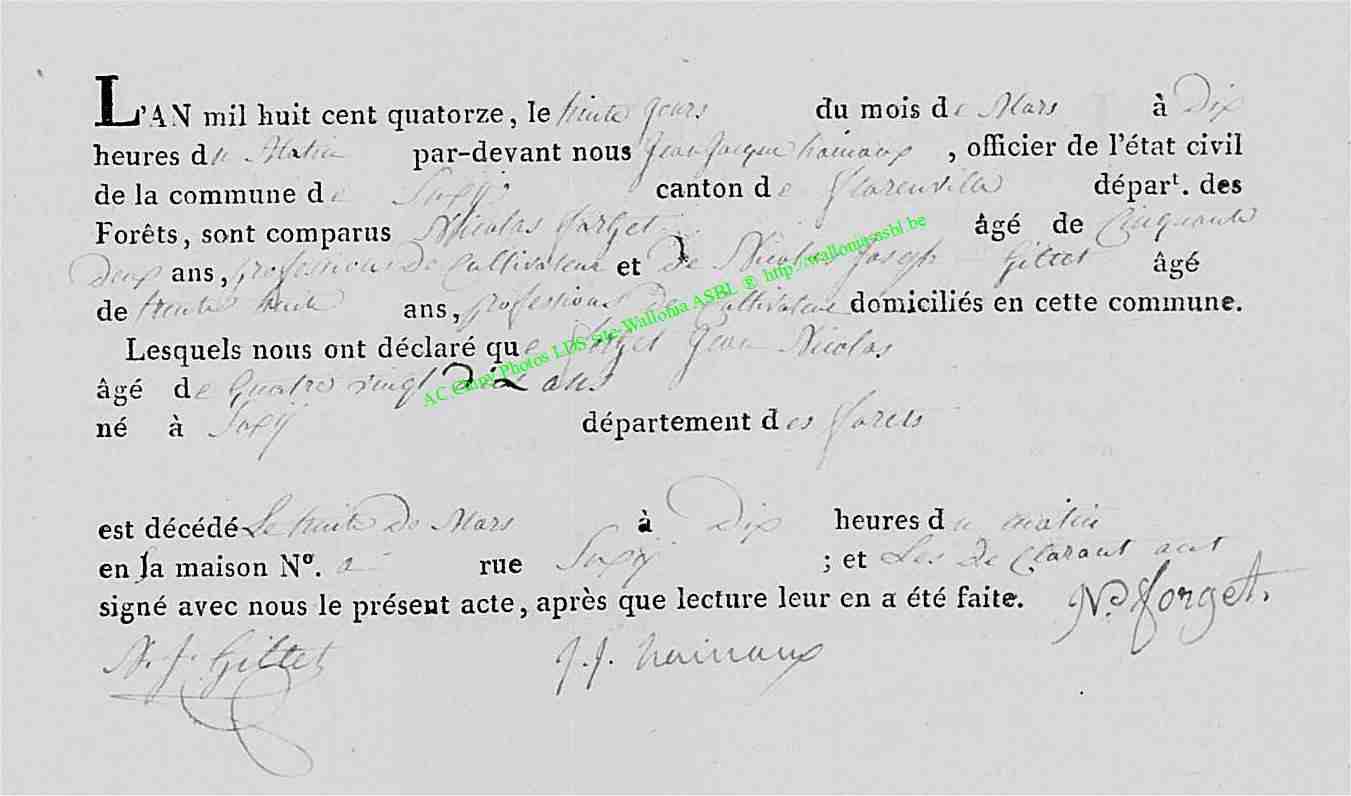 L'AN mil huit cent quatorze, le trente Jours du mois de Mars à Dix
heures du Matin par-devant nous Jean Jacque hainaux, officier de l'état civil
de la commune de Suxÿ canton de florenville départ. des
Forêts, sont comparus Nicolas forget âgé de Cinquante
Deux ans, profession De Cultivateur et De Nicolas Joseph Gillet âgé
de trente ans, profession De Cultivateur domiciliés en cette commune.
Lesquels nous ont déclaré que forget Jean Nicolas
âgé de Quatre vingt Dix ans
né à Suxÿ département des forets
est décédé Le De Mars à Dix heures du matin
en sa maison N°. rue Suxÿ ; et Les De Clarant ont
signé avec nous le présent acte, après que lecture leur en a été faite. N. forget.
N. J. Gillet J. J. hainaux
AC Chiny Photos LDS Site Wallonia ASBL ® http://walloniasasbl.be